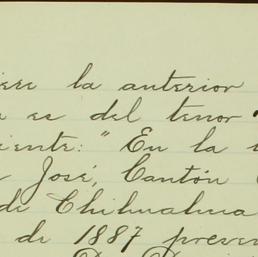 la anterior
es del tenor
"En la
José, Cantón
de Chihuahua
de 1887